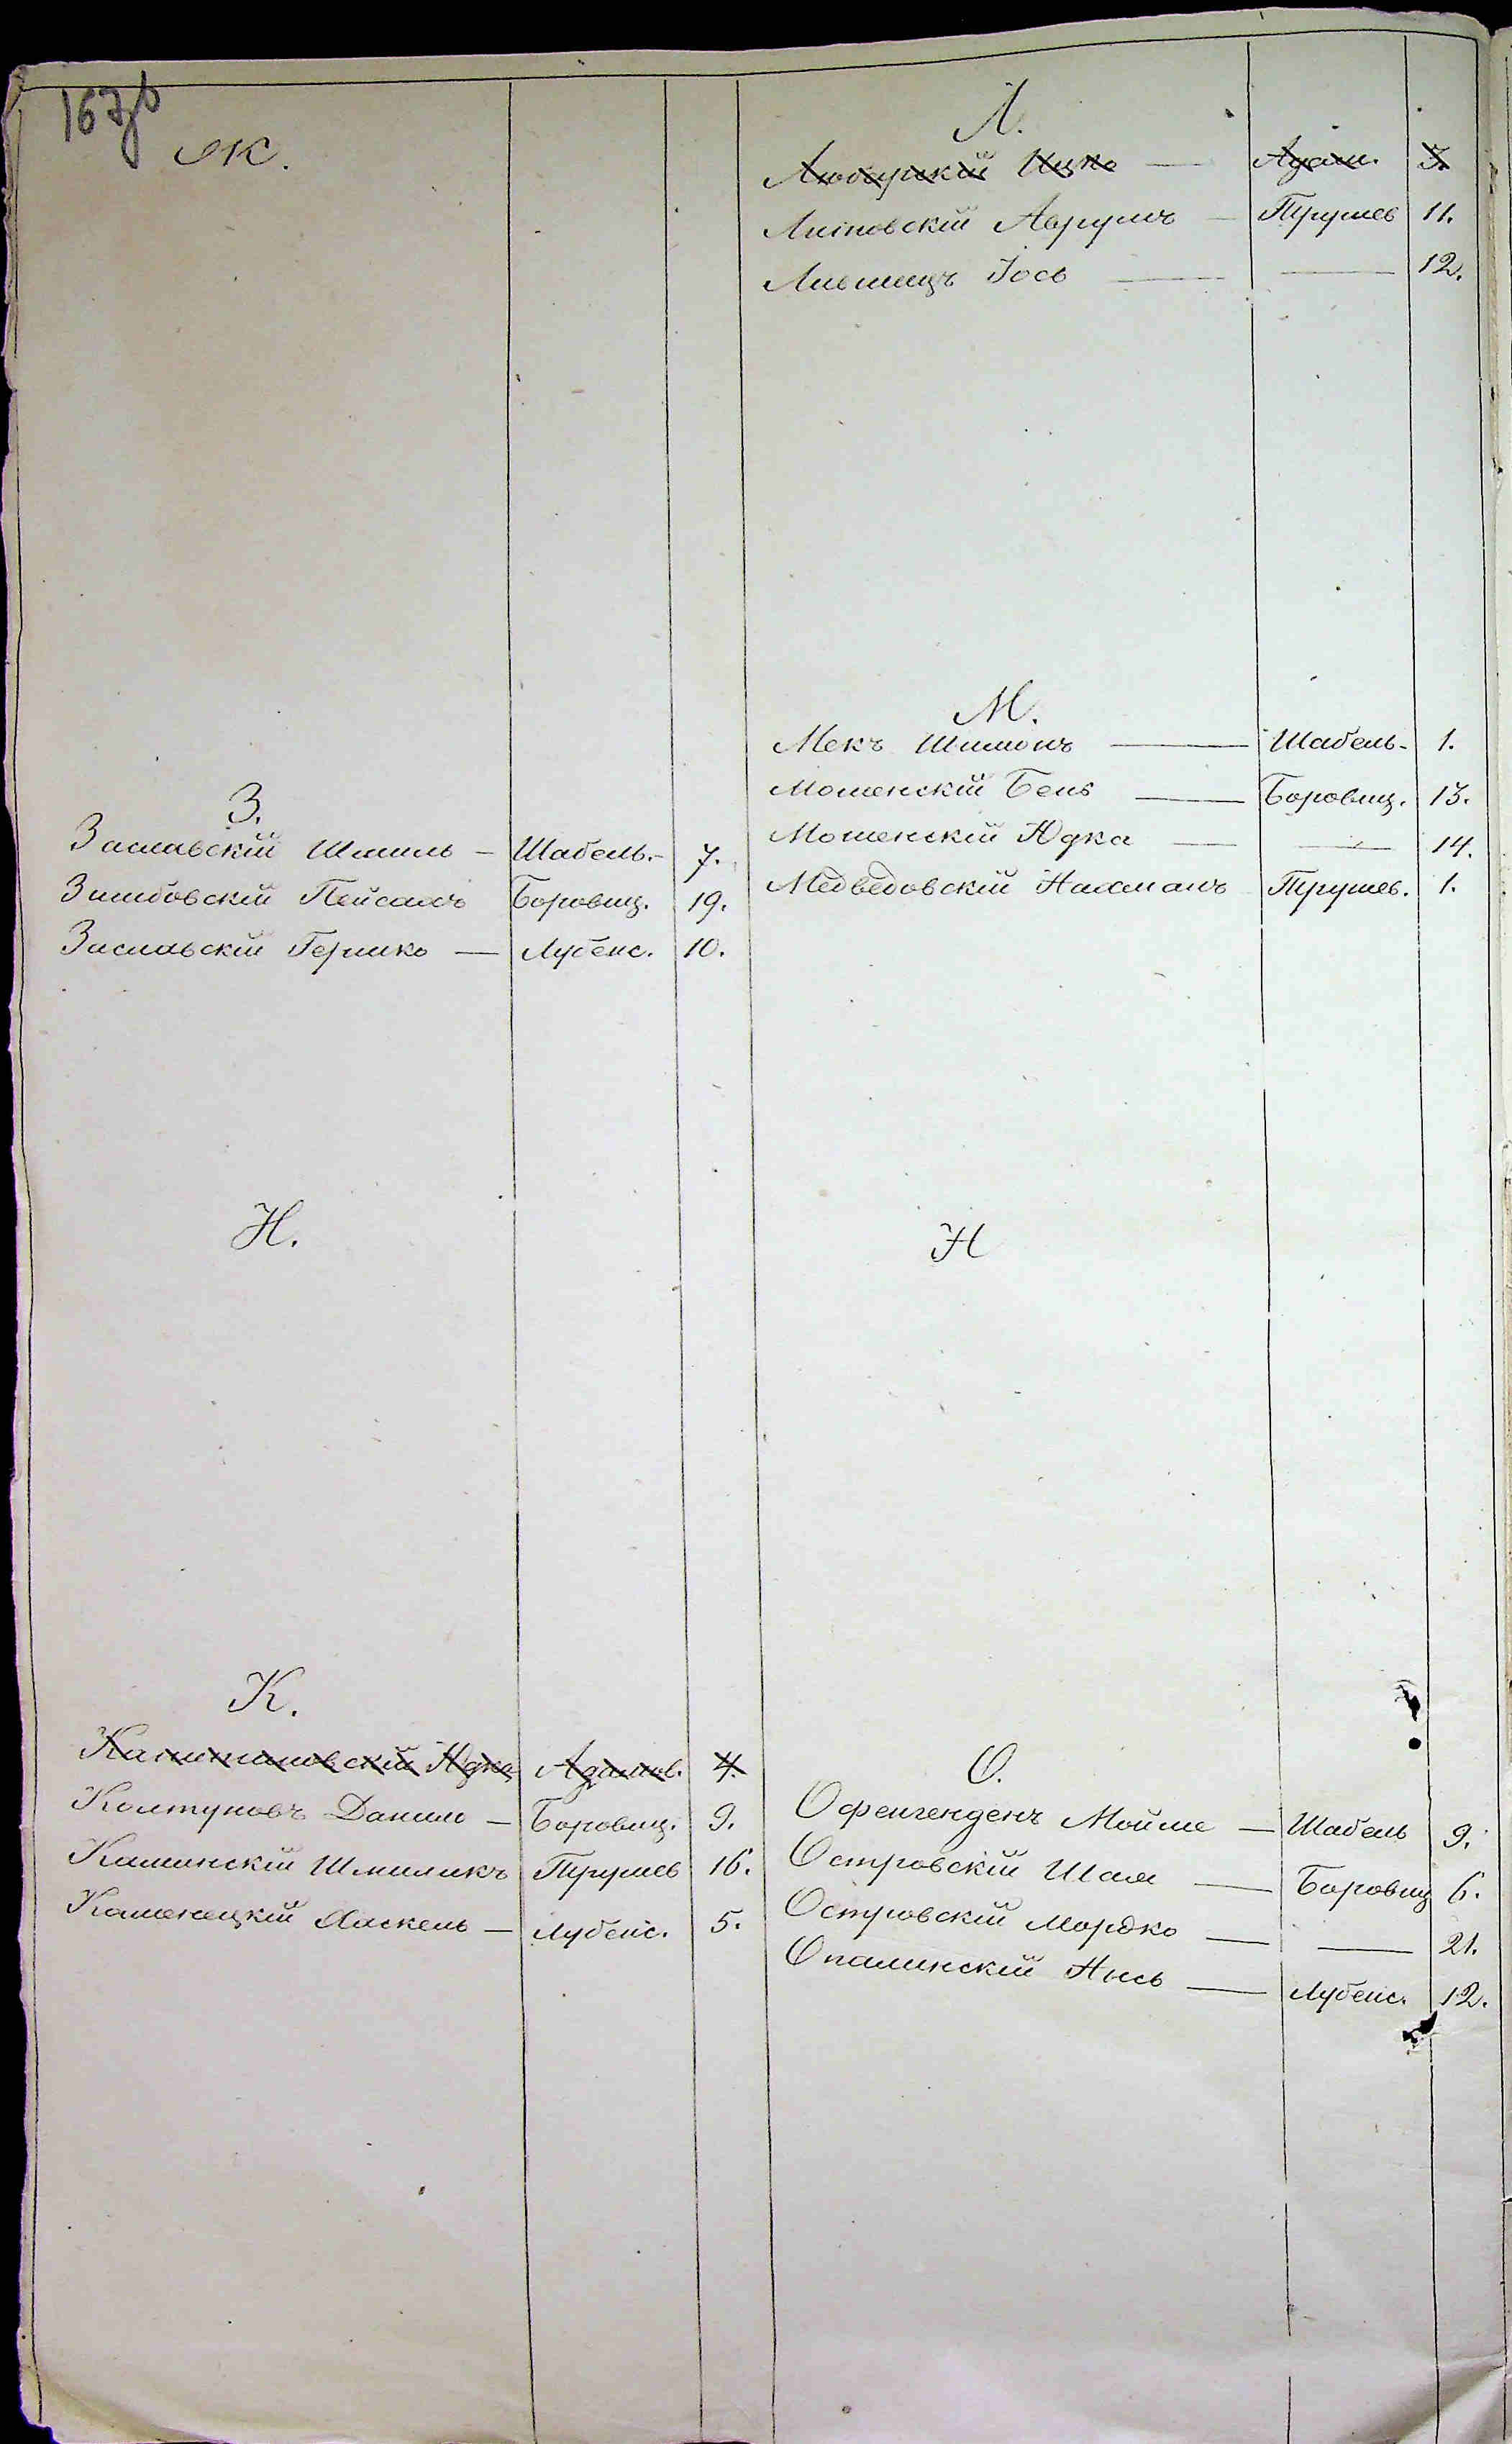 167б
Ж.
З.
Заславскій Шмиль — Шабель.- 7.
Зимбовскій Пейсахъ Боровиц. 19.
Заславскій Гершко — Лубенс. 10.
И.
К.
Капитановскій Юдка Адамов. 4.
Колтуновъ Данило — Боровиц. 9.
Каминскій Шмиликъ Трушев 16.
Каменецкій Хаскель — Лубенс. 5.
Л.
Любарскій Ицко — Адам. 3.
Липовскій Аврумъ — Трушев 11.
Лившицъ Іось — — 12.
М.
Мекъ Шимонъ — Шабель- 1.
Мошенскій Бень — Боровиц. 13.
Мошенскій Юдка — — 14.
Медведовскій Нахманъ Трушев. 1.
Н
О.
Офенгенденъ Мойше — Шабель 9.
Островскій Шая — Боровиц 6.
Островскій Мордко — — 21.
Опалинскій Янсь — Лубенс. 12.